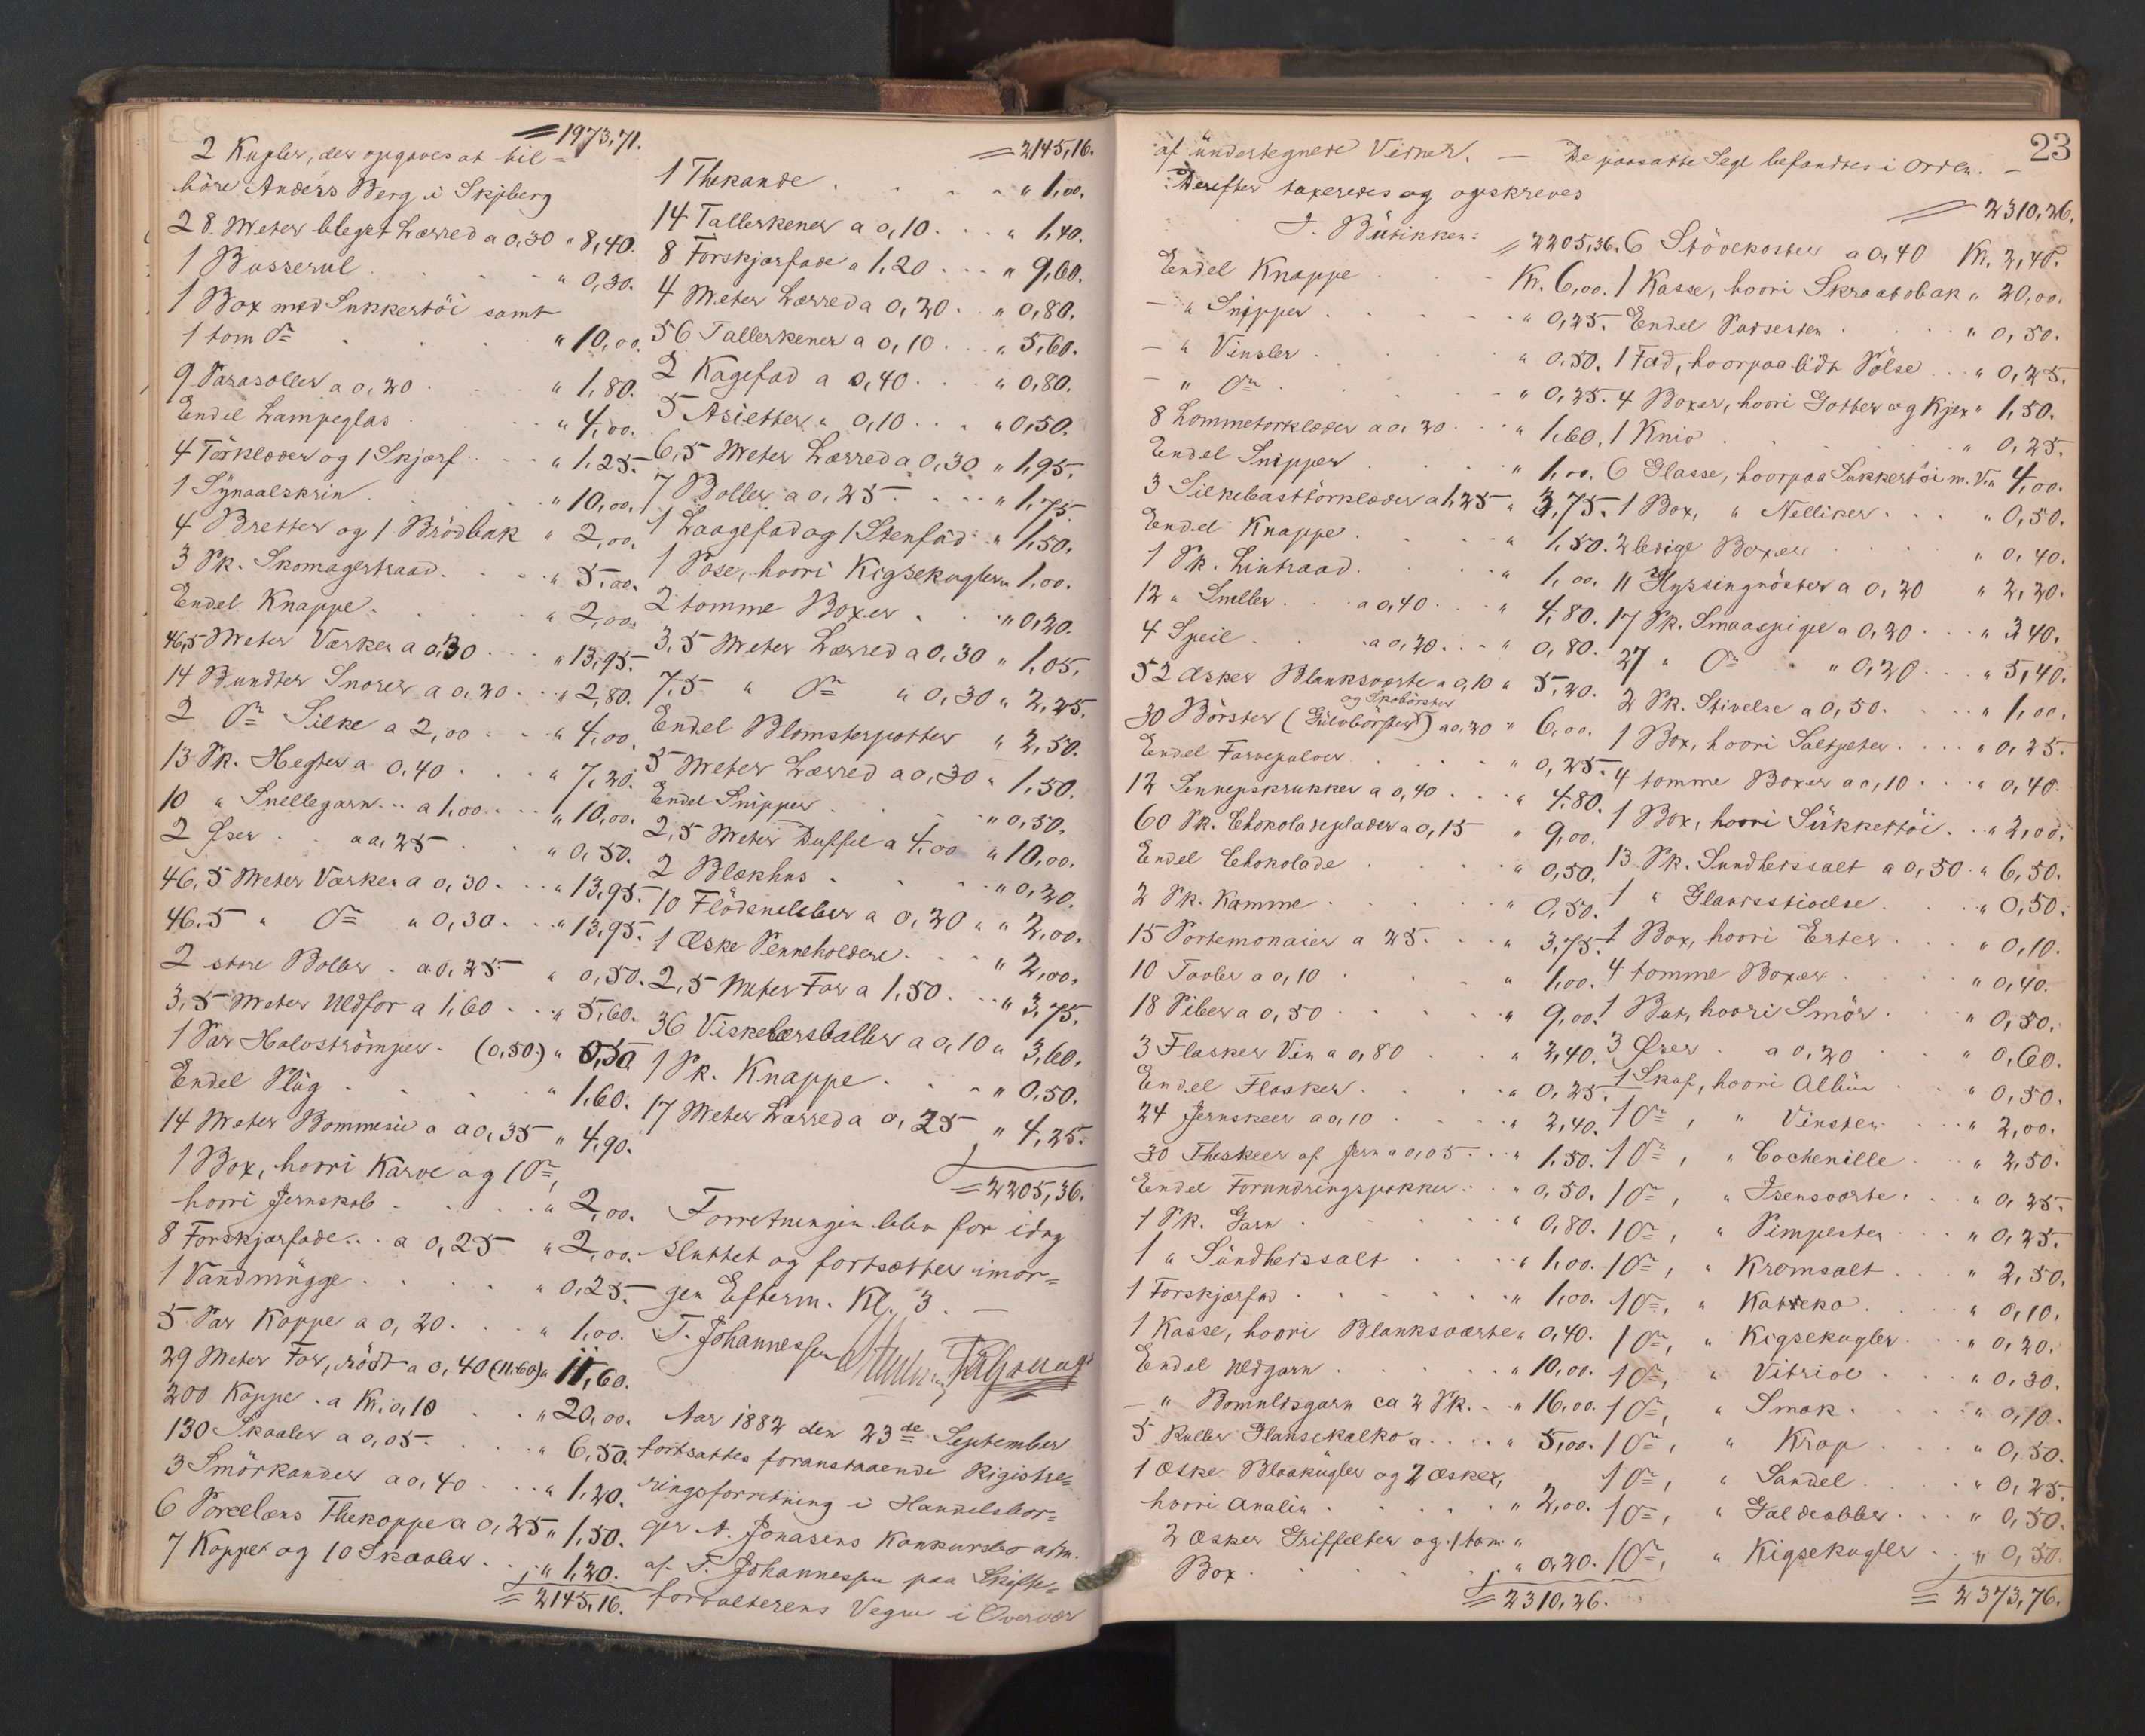 = 1973,71.
2 Kufler, der opgaves at til=
höre Anders Berg i Skjberg
28 Meter bleget Lærred a 0,30 " 8,40.
1 Busserul . . . " 0,30.
1 Box med Sukkertöi samt
1 tom Do . . . " 10,00.
9 Parasoller a 0,20 . . " 1,80.
Endel Lampeglas . . " 4,00.
4 Törklæder og 1 Skjærf . . " 1,25.
1 Synaalskrin . . . " 10,00.
4 Bretter og 1 Brödbak " 2,00.
3 Pk. Skomagertraad . . . " 5,00.
Endel Knappe . . . " 2,00.
46,5 Meter Værken a 0,30 . . " 13,95.
14 Bundter Snorer a 0,20 . . " 2,80.
2 Do Silke a 2,00 . . . " 4,00.
13 Pk. Hegter a 0,40 . . . " 7,20.
10 " Snellegarn . . a 1,00 . . . " 10,00.
2 Øser . . a 0,25 . . " 0,50.
46,5 Meter Værken a 0,30 . . " 13,95.
46,5 " Do " 0,30 . . " 13,95.
2 store Boller . a 0,25 " 0,50.
3,5 Meter Uldfor a 1,60 . . " 5,60.
1 Par Halvströmper . (0,50.) " 0,50
Endel Plüg . . . " 1,60.
14 Meter Bommesie a a 0,35 " 4,90.
1 Box, hvori Karve og 1 Do,
hvori Jernskab . . . " 2,00.
8 Forskjærfade . . a 0,25 " 2,00.
1 Vandmugge . . . " 0,25.
5 Par Koppe a 0,20 . . . " 1,00.
29 Meter For, rödt a 0,40 (11.60) " 11,60.
200 Koppe . a Kr. 0,10 . . " 20,00.
130 Skaaler a 0,05 . . . " 6,50.
3 Smörkander a 0,40 . . . " 1,20.
6 Porcelæns Thekoppe a 0,25 " 1,50.
7 Koppe og 10 Skaaler . . " 1,20.
= 2145,16.
= 2145,16.
1 Thekande . . . . " 1,00.
14 Tallerkener a 0,10 . . . " 1,40.
8 Forskjærfade a 1,20 . . . " 9,60.
4 Meter Lærred a 0,20 . . " 0,80.
56 Tallerkener a 0,10 . . . " 5,60.
2 Kagefad a 0,40 . . . " 0,80.
5 Asietter " 0,10 . . . " 0,50.
6,5 Meter Lærred a 0,30 " 1,95.
7 Boller a 0,25 . . . " 1,75.
1 Laagefad og 1 Stenfad . " 1,50.
1 Pose, hvori Kigsekugler " 1,00.
2 tomme Boxer . . " 0,20.
3,5 Meter Lærred a 0,30 " 1,05.
7,5 " Do " 0,30 " 2,25.
Endel Blomsterpotter " 2,50.
5 Meter Lærred a 0,30 " 1,50.
Endel Snipper . . . " 0,50.
2,5 Meter Duffel a 4,00 " 10,00.
2 Blækhus . . . " 0,20.
10 Flödeneleber a 0,20 " " 2,00.
1 Æske Penneholdere . . . " 2,00.
2,5 Meter For a 1,50 . . " 3,75.
36 Viskelærsballer a 0,10 " 3,60.
1 Pk. Knappe . . . " 0,50.
17 Meter Lærred a 0,25 " 4,25.
= 2205,36.
Forretningen blev for idag
sluttet og fortsætter imor=
gen Efterm. Kl. 3. —
T. Johannessen
Aar 1882 den 23de September
fortsattes foranstaaende Rigistre=
ringsforretning i Handelsbor=
ger A. Jonasens Konkursbo afm.
af T. Johannessen paa Skifte=
forvalterens Vegne i Overvær
23
af undertegnede Vidner. — De paasatte Segl befandtes i Orden. —
Derefter taxeredes og opskreves
I. Butikken: = 2205,36.
Endel Knappe . . Kr. 6,00.
— " Snipper . . . . " 0,25.
— " Vinsler . . . " 0,50.
— " Do . . . . " 0,25.
8 Lommetörklæder a 0,20 . . " 1,60.
Endel Snipper . . . . " 1,00.
3 Silkebasttörklæder a 1,25 " 3,75.
Endel Knappe . . . . " 1,50.
1 Pk. Lintraad . . . . " 1,00.
12 " Sneller . . a 0,40 . . " 4,80.
4 Speil . . . a 0,20 . . " 0,80.
52 Æsker Blanksværte a 0,10 " 5,20.
og Skobörster
30 Börster (Gulvbörster) a 0,20 " 6,00.
Endel Farvepulver . . . . " 0,25.
12 Sennepskrukker a 0,40 . . " 4,80.
60 Pk. Chokoladeplader a 0,15 " 9,00.
Endel Chokolade . . . . " 0,50.
2 Pk. Kamme . . . . " 0,50.
15 Portemonaier a 25 . . . " 3,75.
10 Tavler a 0,10 . . . . " 1,00.
18 Piber a 0,50 . . . . " 9,00.
3 Flasker Vin a 0,80 . . " 2,40.
Endel Flasker . . . . " 0,25.
24 Jernskeer a 0,10 . . . . " 2,40.
30 Theskeer af Jern a 0,05 . . . " 1,50.
Endel Forundringspakker . . " 0,50.
1 Pk. Garn . . . . " 0,80.
1 " Sundhedssalt . . . " 1,00.
1 Forskjærfad . . . . . " 1,00.
1 Kasse, hvori Blanksværte " 0,40.
Endel Uldgarn . . . . " 10,00.
— " Bomuldsgarn ca 2 Pk. . . " 16,00.
5 Ruller Glansekalko a . . . " 5,00.
1 Æske Blaakugler og 2 Æsker,
hvori Analin . . . . . " 2,00.
2 Æsker Griffelter og 1 tom "
Box . . . . . " 0,20.
= 2310,26.
= 2310,26.
6 Stövekoster a 0,40 Kr. 2,40.
1 Kasse, hvori Skraatobak " 20,00.
Endel Pudsesten . . . " 0,50.
1 Fad, hvorpaa lidt Pölse . . " 0,25.
4 Boxer, hvori Gotter og Kjex " 1,50.
1 Kniv . . . . . " 0,25.
6 Glasse, hvorpaa Sukkertöi m. V. " 4,00.
1 Box, " Nelliker . . . " 0,50.
2 ledige Boxer . . . . " 0,40.
11 Hyssingnöster a 0,20 " 2,20.
17 Pk. Smaaspiger a 0,20 . . . " 3,40.
27 " Do . " 0,20 . . . " 5,40.
2 Pk. Stivelse a 0,50 . . . " 1,00.
1 Box, hvori Saltpeter . . . . " 0,25.
4 tomme Boxer a 0,10 . . . " 0,40.
1 Box, hvori Sukkertöi . . . " 2,00.
13 Pk. Sundhedssalt a 0,50 . " 6,50.
1 " Glandsstivelse . . . " 0,50.
1 Box, hvori Erter . . . " 0,10.
4 tomme Boxer . . . . " 0,40.
1 But, hvori Smör . . . " 0,50.
3 Øser . a 0,20 . . " 0,60.
1 Skap, hvori Allun . . " 0,50.
1 Do, " Vinsten . . . " 2,00.
1 Do, " Cochenille . . " 2,50.
1 Do, " Isensværte . . . " 0,25.
1 Do, " Pimpesten . . . " 0,25.
1 Do, " Kromsalt . . . " 2,50.
1 Do, " Katteko . . . " 0,10.
1 Do, " Kigsekugler . . . " 0,20.
1 Do, " Vitriol . . . " 0,30.
1 Do, " Smak . . . . " 0,10.
1 Do, " Krap . . . " 0,50.
1 Do, " Sandel . . . " 0,25.
1 Do, " Galdeabber . . . " 0,50.
1 Do, " Kigsekugler . . " 0,50.
= 2373,76.